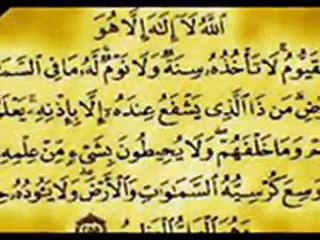 اللَّهُ لَا إِلَٰهَ إِلَّا هُوَ
لْقَيُّومُ لَا تَأْخُذُهُ سِنَةٌ وَلَا نَوْمٌ لَهُ مَا فِي السَّمَا
ضِ مَن ذَا الَّذِي يَشْفَعُ عِندَهُ إِلَّا بِإِذْنِهِ يَعْلَمُ
هِمْ وَمَا خَلْفَهُمْ وَلَا يُحِيطُونَ بِشَيْءٍ مِّنْ عِلْمِهِ
وَسِعَ كُرْسِيُّهُ السَّمَاوَاتِ وَالْأَرْضَ وَلَا يَئُودُهُ حِ
وَهُوَ الْعَلِيُّ الْعَظِيمُ